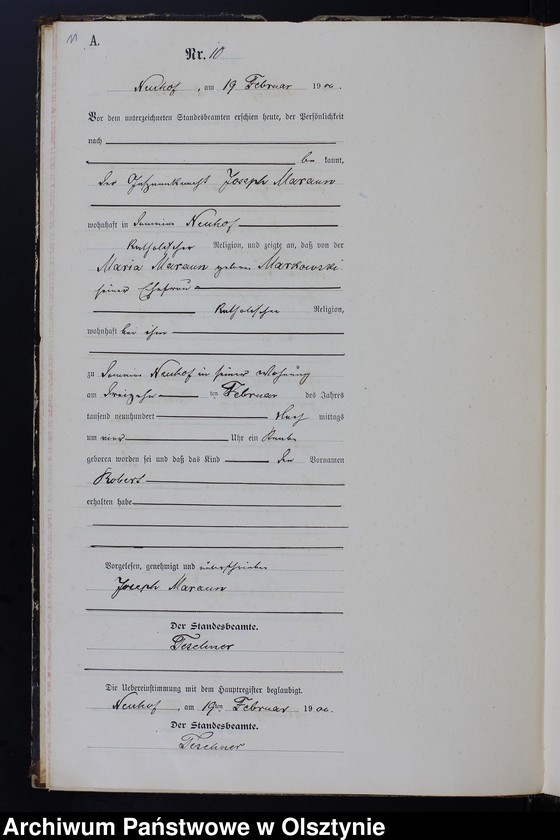 11
A.
Nr. 10
Neuhof, am 19 Februar 1900.
Vor dem unterzeichneten Standesbeamten erschien heute, der Persönlichkeit
nach
be kannt,
der Joseph Maraun
wohnhaft in Domaine Neuhof
katholischer Religion, und zeigte an, daß von der
Maria Maraun geborne Markowski
seiner Ehefrau
katholischer Religion,
wohnhaft bei ihm
zu Domaine Neuhof in seiner Wohnung
am dreizehn ten Februar des Jahres
tausend neunhundert Nach mittags
um vier Uhr ein Knabe
geboren worden sei und daß das Kind den Vornamen
Robert
erhalten habe
Vorgelesen, genehmigt und unterschrieben
Joseph Maraun
Der Standesbeamte.
Teschner
Die Uebereinstimmung mit dem Hauptregister beglaubigt.
Neuhof, am 19ten Februar 1900.
Der Standesbeamte.
Teschner
Archiwum Państwowe w Olsztynie